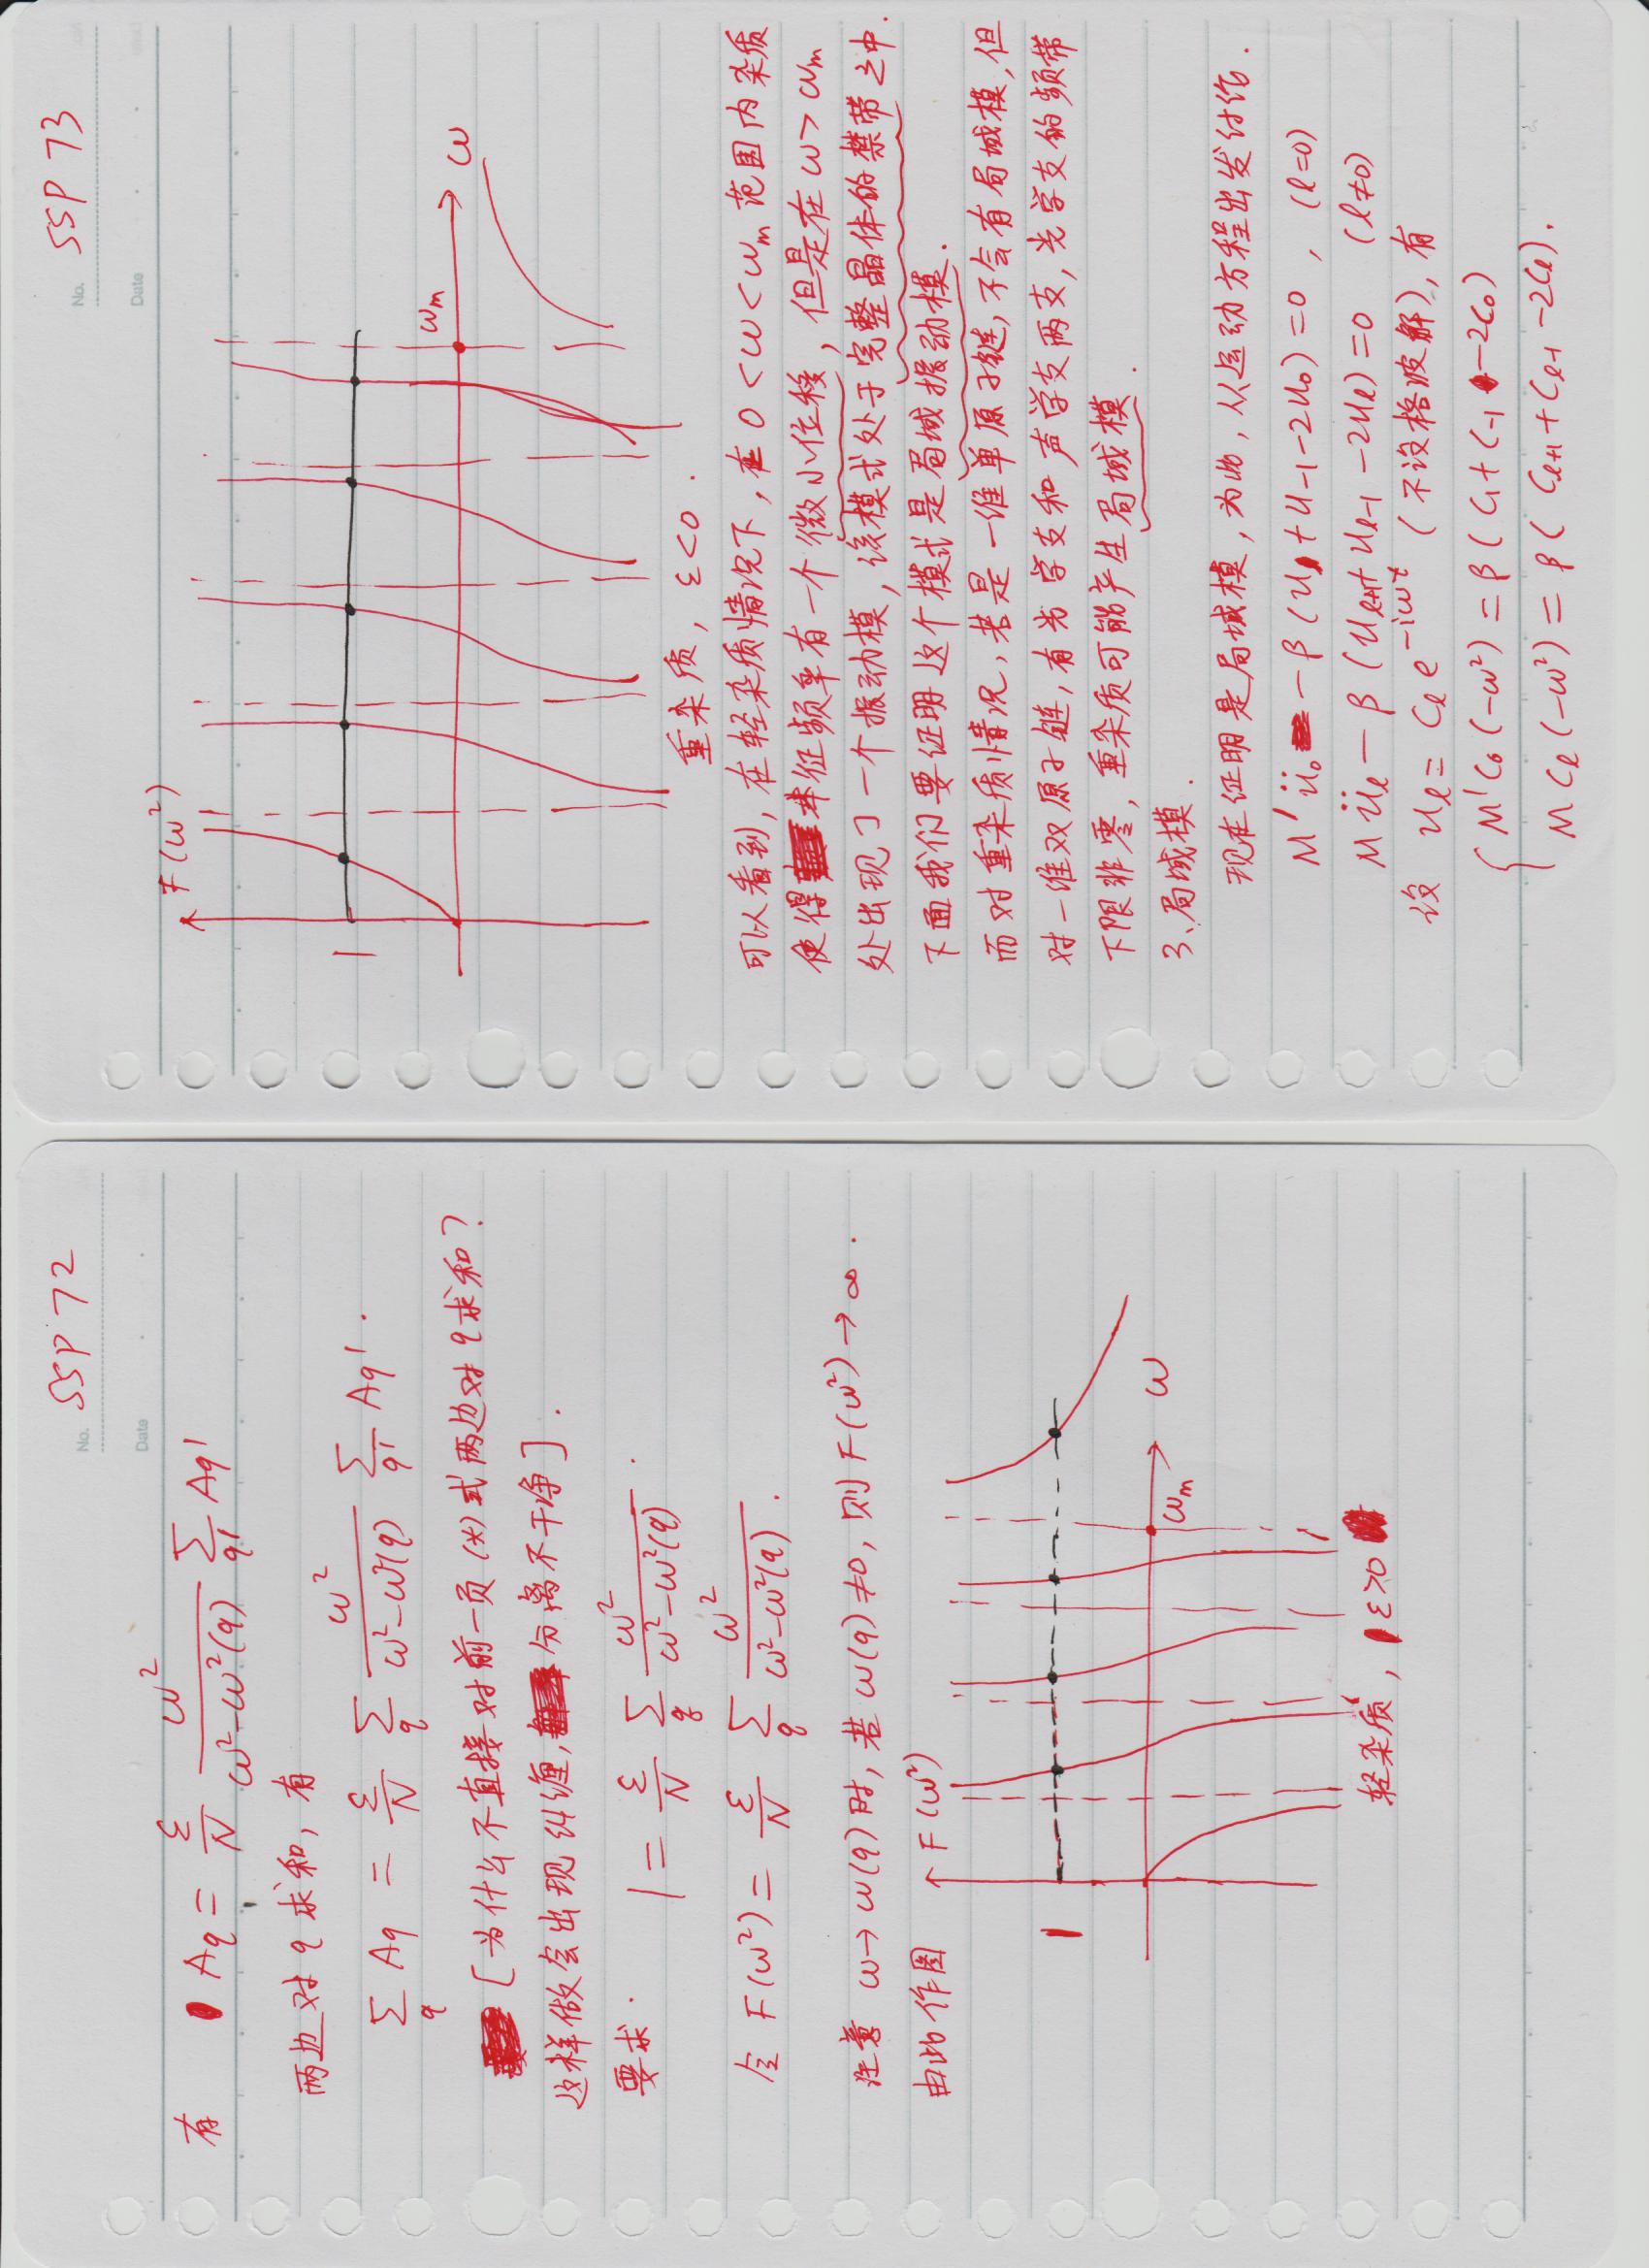 No. SSP 72
Date
有 A_q = ε/N ω²/(ω²-ω²(q)) Σ_q' A_q'
两边对 q 求和, 有
Σ_q A_q = ε/N Σ_q ω²/(ω²-ω²(q)) Σ_q' A_q' .
[为什么不直接对前一页 (*) 式两边对 q 求和?
这样做会出现纠缠, 分离不干净].
要求. 1 = ε/N Σ_q ω²/(ω²-ω²(q)) .
令 F(ω²) = ε/N Σ_q ω²/(ω²-ω²(q)) .
注意 ω→ω(q) 时, 若 ω(q)≠0, 则 F(ω²)→∞ .
由此作图
F(ω²)
1
ω_m
ω
轻杂质, ε>0
No. SSP 73
Date
F(ω²)
1
ω_m
ω
重杂质, ε<0 .
可以看到, 在轻杂质情况下, 在 0<ω<ω_m 范围内杂质
使得本征频率有一个微小位移, 但是在 ω>ω_m
处出现了一个振动模, 该模式处于完整晶体的禁带之中.
下面我们要证明这个模式是局域振动模.
而对重杂质情况, 若是一维单原子链, 不会有局域模, 但
对一维双原子链, 有光学支和声学支两支, 光学支的频带
下限非零, 重杂质可能产生局域模.
3、局域模.
现在证明是局域模, 为此, 从运动方程出发讨论.
M'ü₀ - β(u₁+u₋₁-2u₀)=0 , (l=0)
Mü_l - β(u_{l+1}+u_{l-1}-2u_l)=0 (l≠0)
设 u_l = C_l e^{-iωt} (不设格波解), 有
{ M'C₀(-ω²) = β(C₁+C₋₁-2C₀)
MC_l(-ω²) = β(C_{l+1}+C_{l-1}-2C_l).